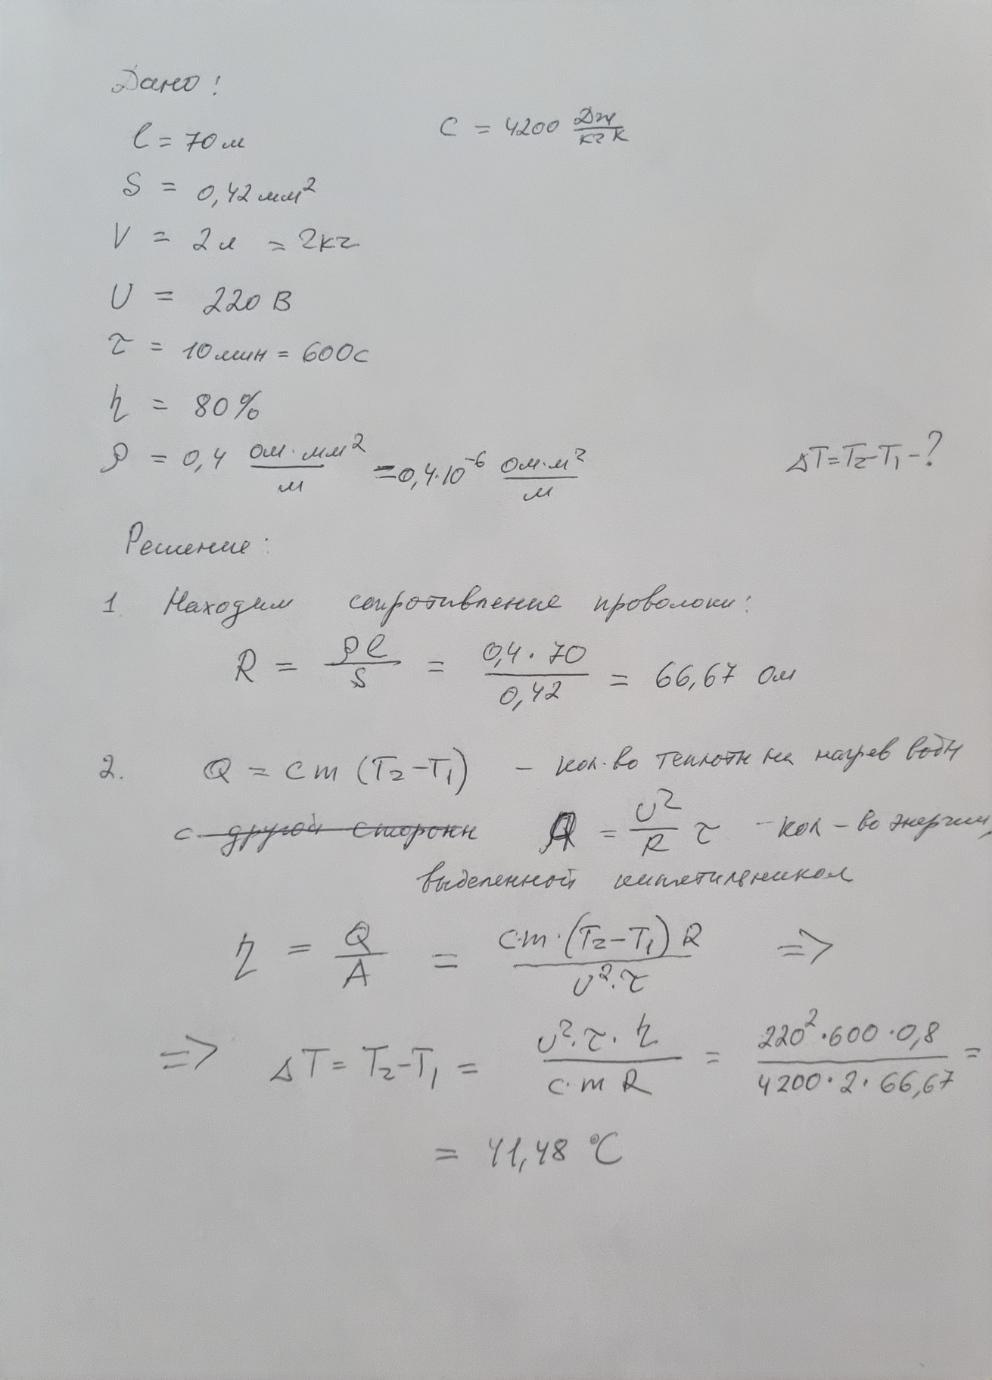 Дано:
l = 70м
c = 4200 Дж/кг К
S = 0,42 мм²
V = 2л = 2кг
U = 220 В
τ = 10мин = 600с
η = 80%
ρ = 0,4 Ом·мм²/м = 0,4·10⁻⁶ Ом·м²/м
ΔT = T₂-T₁ - ?
Решение:
1. Находим сопротивление проволоки:
R = ρl/S = 0,4·70/0,42 = 66,67 Ом
2. Q = cm (T₂-T₁) - кол-во теплоты на нагрев воды
с другой стороны A = U²/R τ - кол-во энергии,
выделенной кипятильником
η = Q/A = c·m·(T₂-T₁) R/U²·τ =>
=> ΔT = T₂-T₁ = U²·τ·η/c·m R = 220²·600·0,8/4200·2·66,67 =
= 41,48 °C